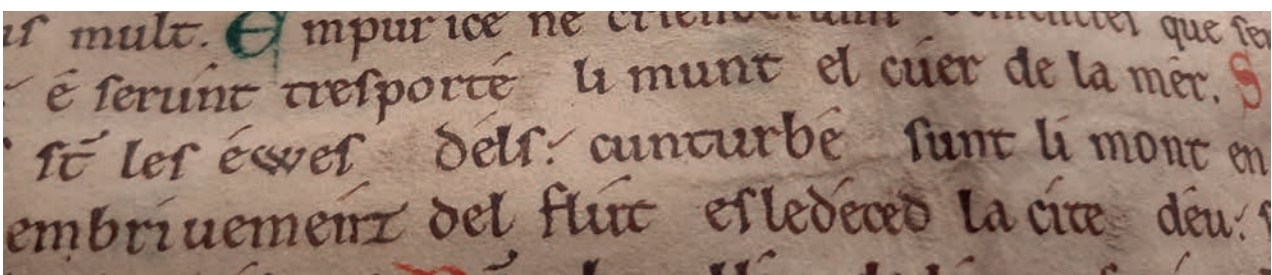 us mult. Empur icé ne crienderunt que ser
é serunt tresporté li munt el cúer de la mér. S
st̄ les éwes déls: cunturbé sunt li mont en
embríuement del flút esledéced la cite déu: s